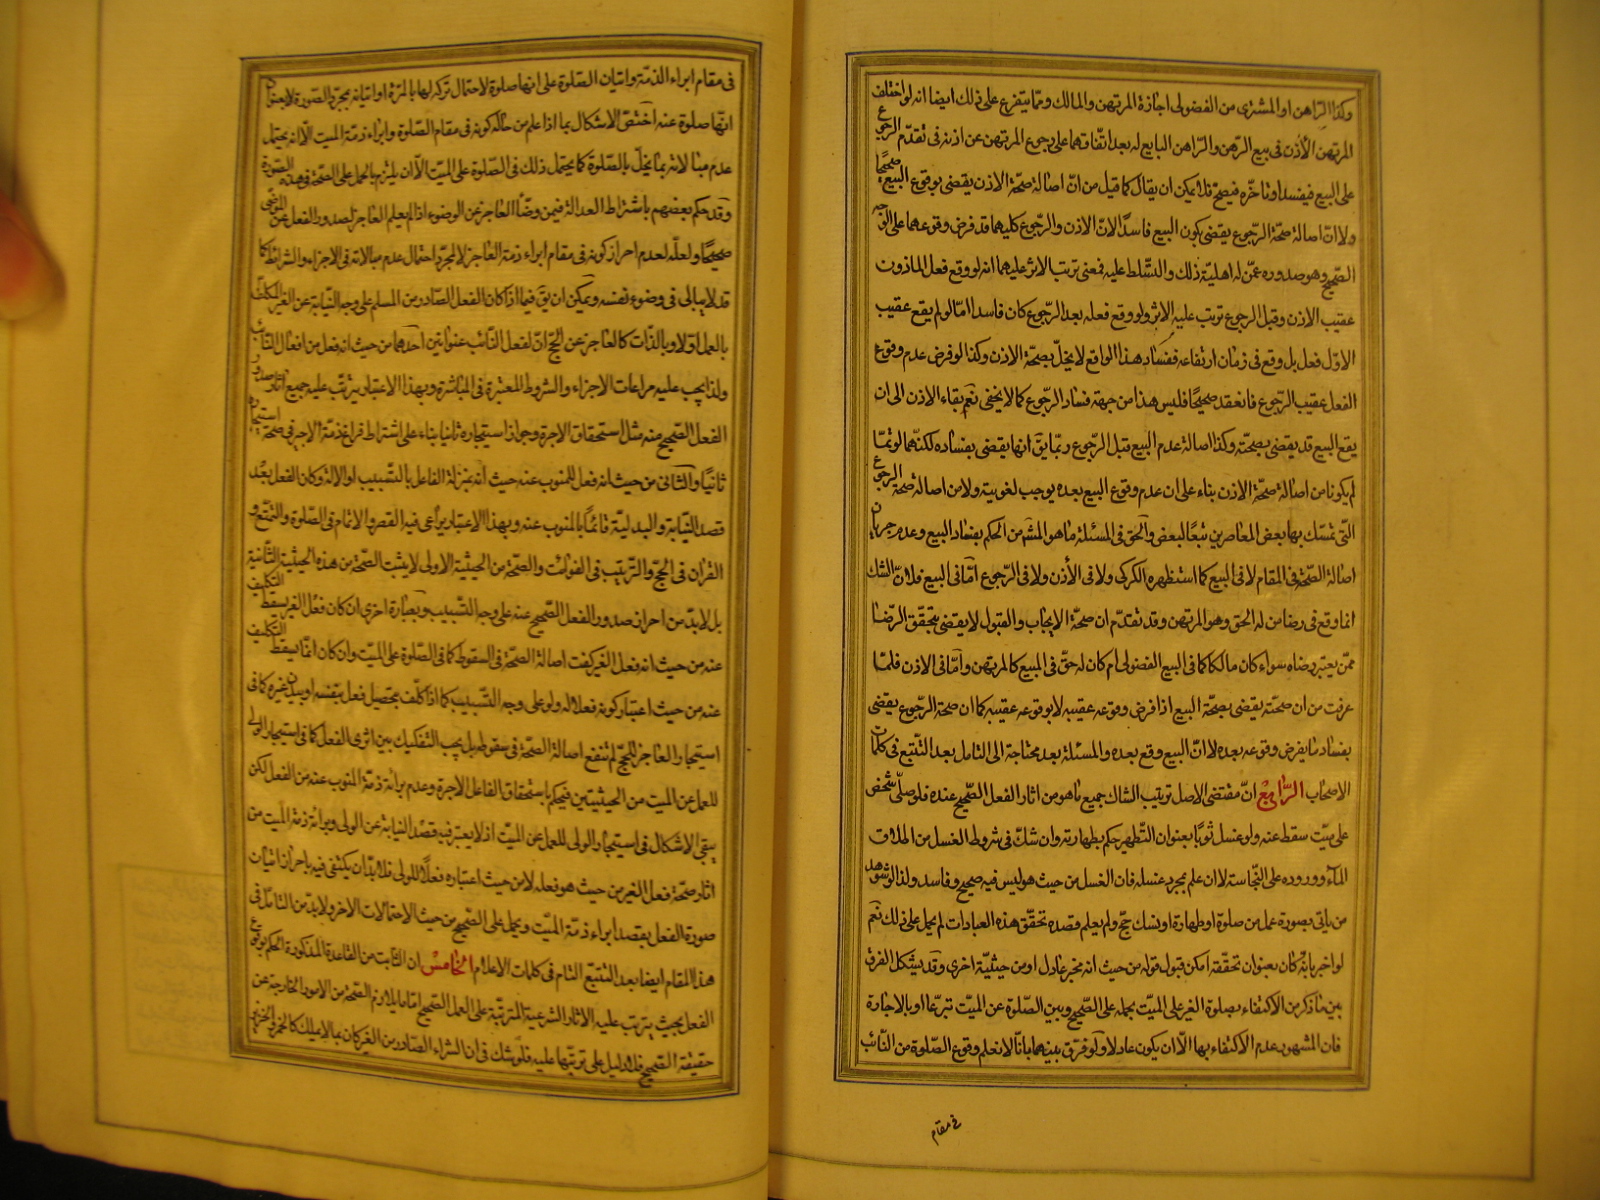 وكذا الراهن او المشترى من الفضولى اجازة المرتهن والمالك ومما يتفرع على ذلك ايضا انه لو اختلف
المرتهن الأذن فى بيع الرهن والراهن البايع له بعد اتفاقهما على رجوع المرتهن عن اذنه فى تقدم الرجوع
على البيع فيفسد او تاخره فيصح فلا يمكن ان يقال كما قيل من ان اصالة صحة الاذن يقضى بوقوع البيع صحيحا
ولا ان اصالة صحة الرجوع يقضى بكون البيع فاسدا لان الاذن والرجوع كليهما قد فرض وقوعهما على الوجه
الصحيح وهو صدوره عمن له اهلية ذلك والتسلط عليه فمعنى ترتب الاثر عليهما انه لو وقع فعل الماذون
عقيب الاذن وقبل الرجوع ترتب عليه الاثر ولو وقع فعله بعد الرجوع كان فاسدا امّا لو لم يقع عقيب
الاوّل فعل بل وقع فى زمان ارتفاعه ففساد هذا الواقع لا يخل بصحة الاذن وكذا لو فرض عدم وقوع
الفعل عقيب الرجوع فانعقد صحيحا فليس هذا من جهة فساد الرجوع كما لا يخفى نعم بقاء الاذن الى ان
يقع البيع قد يقضى بصحته وكذا اصالة عدم البيع قبل الرجوع ربما يق انها يقضى بفساده لكنهما لو تمّا
لم يكونا من اصالة صحة الاذن بناء على ان عدم وقوع البيع بعده يوجب لغويته ولا من اصالة صحة الرجوع
التى تمسك بها بعض المعاصرين تبعا لبعض والحق فى المسئلة ما هو المشه من الحكم بفساد البيع وعدم جريان
اصالة الصحة فى المقام لا فى البيع كما استظهره الكركى ولا فى الأذن ولا فى الرجوع امّا فى البيع فلان الشك
انما وقع فى رضا من له الحق وهو المرتهن وقد تقدم ان صحة الايجاب والقبول لا يقضى بتحقق الرضا
ممن يعتبر رضاه سواء كان مالكا كما فى البيع الفضولى ام كان له حق فى المبيع كالمرتهن وامّا فى الاذن فلما
عرفت من ان صحته يقضى بصحة البيع اذا فرض وقوعه عقيبه لا بوقوعه عقيبه كما ان صحة الرجوع يقضى
بفساد ما يفرض وقوعه بعده لا ان البيع وقع بعده والمسئلة بعد محتاجة الى التامل بعد التتبع فى كلمات
الاصحاب الرّابع ان مقتضى الاصل ترتيب الشاك جميع ما هو من اثار الفعل الصحيح عنده فلو صلّى شخص
على ميت سقط عنه ولو غسل ثوبا بعنوان التطهير حكم بطهارته وان شك فى شروط الغسل من اطلاق
الماء ووروده على النجاسة لا ان علم بمجرد غسله فان الغسل من حيث هو ليس فيه صحيح وفاسد ولذا لو شوهد
من ياتى بصورة عمل من صلوة او طهارة او نسك حج ولم يعلم قصده تحقق هذه العبادات لم يحمل على ذلك نعم
لو اخبر بانه كان بعنوان تحققه امكن قبول قوله من حيث انه مخبر عادل او من حيثية اخرى وقد يشكل الفرق
بين ما ذكر من الاكتفاء بصلوة الغير على الميت بحمله على الصحيح وبين الصلوة عن الميت تبرعا او بالاجارة
فان المشهور عدم الاكتفاء بها الّا ان يكون عادلا ولو فرق بينهما بانا لا نعلم وقوع الصلوة من النائب
فى مقام
فى مقام ابراء الذمة واتيان الصلوة على انها صلوة لاحتمال تركه لها بالمرة او اتيانه بمجرد الصورة لا بعنوان
انها صلوة عنه اختص الاشكال بما اذا علم من حاله كونه فى مقام الصلوة وابراء ذمة الميت الّا انه يحتمل
عدم مبالاته بما يخل بالصلوة كما يحتمل ذلك فى الصلوة على الميت الّا ان يلتزم بالحمل على الصحة فى هذه الصورة
وقد حكم بعضهم باشتراط العدالة فيمن يوضّأ العاجز عن الوضوء اذا لم يعلم العاجز بصدور الفعل عن الموضى
صحيحا ولعله لعدم احراز كونه فى مقام ابراء ذمة العاجز لا لمجرد احتمال عدم مبالاته فى الاجزاء والشرائط كما
قد لا يبالى فى وضوء نفسه ويمكن ان يق فيما اذا كان الفعل الصادر من المسلم على وجه النيابة عن الغير المكلف
بالعمل اولا وبالذات كالعاجز عن الحج ان لفعل النائب عنوانين احدهما من حيث انه فعل من افعال النائب
ولذا يجب عليه مراعات الاجزاء والشروط المعتبرة فى المباشرة وبهذا الاعتبار يترتب عليه جميع اثار صدور
الفعل الصحيح منه مثل استحقاق الاجرة وجواز استيجاره ثانيا بناء على اشتراط فراغ ذمة الاجير فى صحة استيجاره
ثانيا والثانى من حيث انه فعل للمنوب عنه حيث انه بمنزلة الفاعل بالتسبيب او الالة وكان الفعل بعد
قصد النيابة والبدلية قائما بالمنوب عنه وبهذا الاعتبار يراعى فيه القصر والاتمام فى الصلوة والتمتع و
القران فى الحج والترتيب فى الفوائت والصحة من الحيثية الاولى لا يثبت الصحة من هذه الحيثية الثانية
بل لا بد من احراز صدور الفعل الصحيح عنه على وجه التسبيب وبعبارة اخرى ان كان فعل الغير يسقط التكليف
عنه من حيث انه فعل الغير كفت اصالة الصحة فى السقوط كما فى الصلوة على الميت وان كان انما يسقط التكليف
عنه من حيث اعتبار كونه فعلا له ولو على وجه التسبيب كما اذا كلف بتحصيل فعل بنفسه او ببدن غيره كما فى
استيجار العاجز للحج لم تنفع اصالة الصحة فى سقوطه بل يجب التفكيك بين اثرى الفعل كما فى استيجار الولى
للعمل عن الميت من الحيثيتين فيحكم باستحقاق الفاعل الاجرة وعدم براءة ذمة المنوب عنه من الفعل لكن
يبقى الاشكال فى استيجار الولى للعمل عن الميت اذ لا يعتبر فيه قصد النيابة عن الولى وبراءة ذمة الميت من
اثار صحة فعل الغير من حيث هو فعله لا من حيث اعتباره فعلا للولى فلا بد ان يكتفى فيه باحراز اتيان
صورة الفعل بقصد ابراء ذمة الميت ويحمل على الصحيح من حيث الاحتمالات الاخر ولا بد من التامل فى
هذا المقام ايضا بعد التتبع التام فى كلمات الاعلام الخامس ان الثابت من القاعدة المذكورة الحكم بوقوع
الفعل بحيث يترتب عليه الاثار الشرعية المترتبة على العمل الصحيح امّا ما يلازم الصحة من الامور الخارجة عن
حقيقة الصحيح فلا دليل على ترتبها عليه فلو شك فى ان الشراء الصادر من الغير كان بما لا يملك كالخمر والخنزير